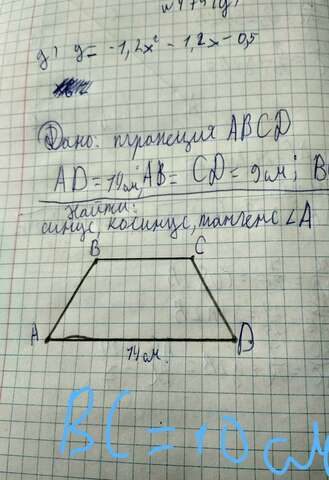 д) y = -1,2x² - 1,2x - 0,5
Дано: трапеция ABCD
AD = 14 см; AB = CD = 9 см; B
Найти:
синус, косинус, тангенс ∠A
B C
A D
14 см
BC = 10 см